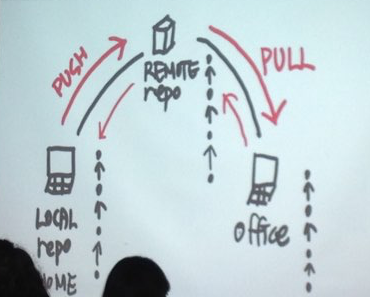 PUSH
REMOTE
repo
PULL
LOCAL
repo
HOME
office